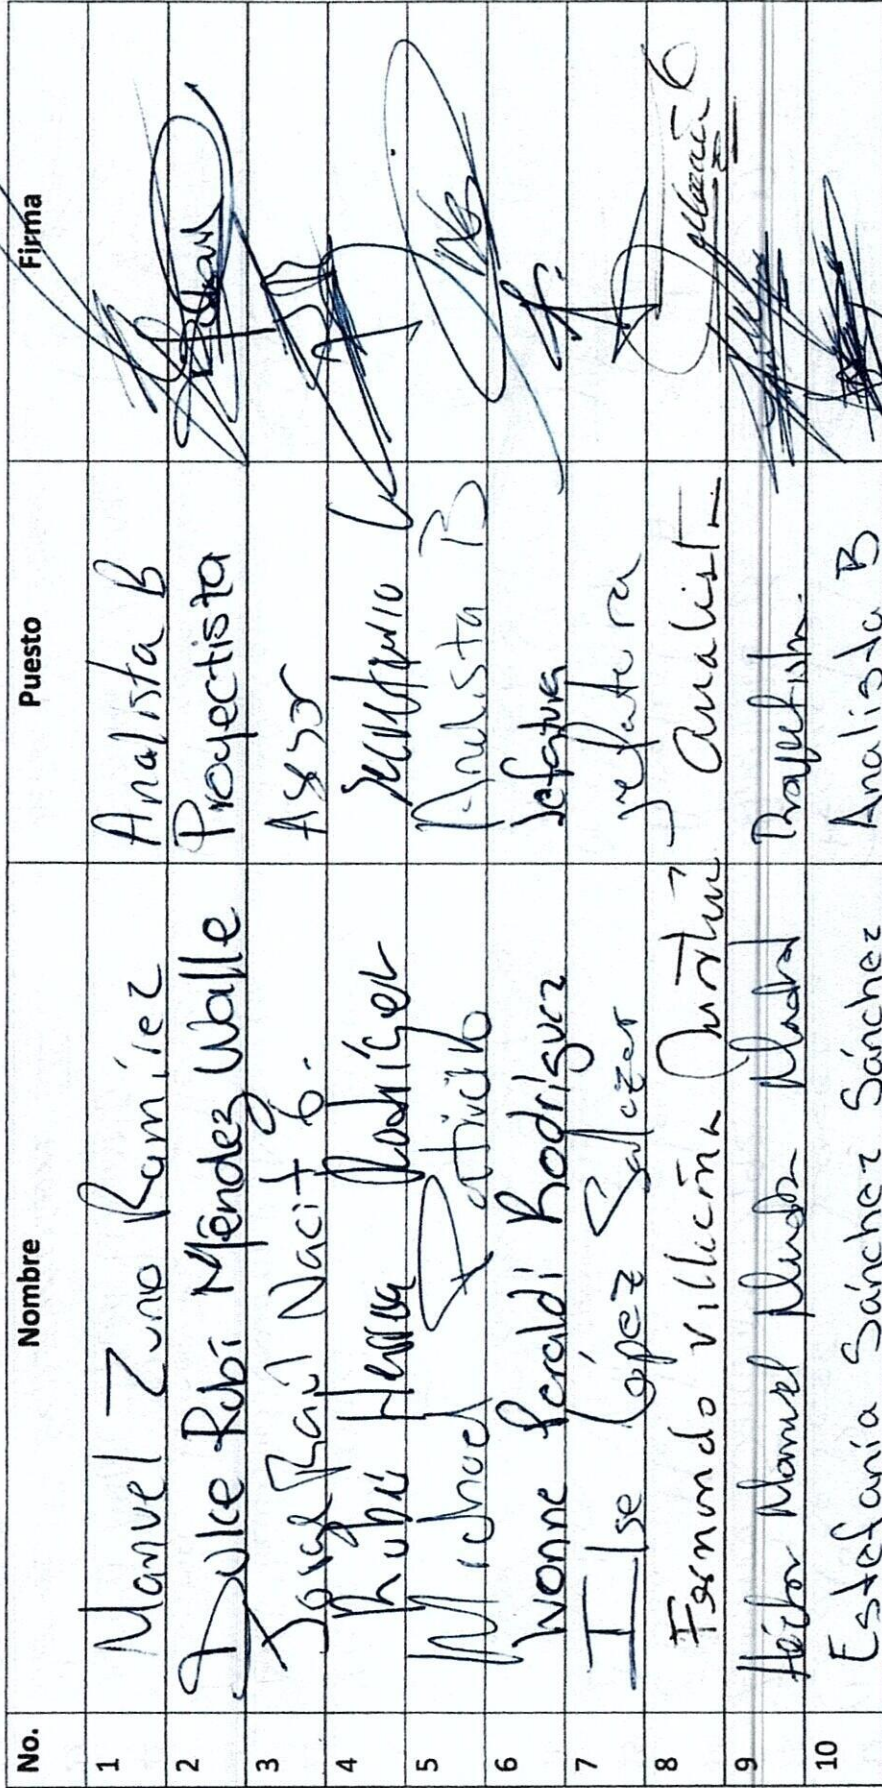 No. Nombre Puesto Firma
1 Manuel Zuno Ramírez Analista B
2 Dulce Rubí Méndez Walle Proyectista
3 Jorge Raúl Nacif G. Asesor
4 Rubí Herrera Rodríguez Secretario
5 Michael Patricio Analista B
6 Ivonne Peraldi Rodríguez Jefatura
7 Ilse López Salazar jefatura
8 Fernando Villicaña analista
9 Héctor Manuel Proyectista
10 Estefanía Sánchez Sánchez Analista B